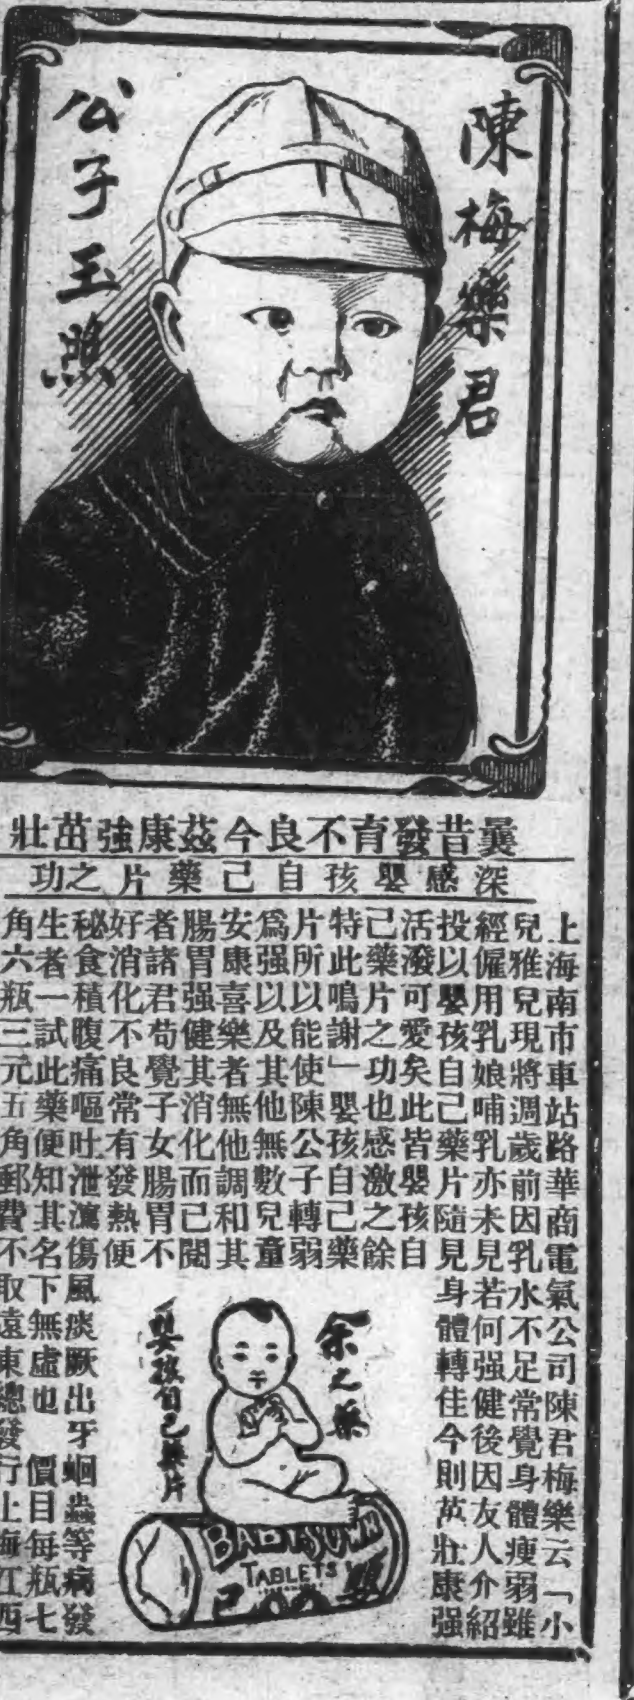 陳梅樂君
公子玉照
曩昔發育不良今茲康強茁壯
深感嬰孩自己藥片之功
上海南市車站路華商電氣公司陳君梅樂云「小
兒雅兒現將週歲前因乳水不足常覺身體瘦弱雖
經僱用乳娘哺乳亦未見若何强健後因友人介紹
投以嬰孩自己藥片隨見身體轉佳今則茁壯康强
活潑可愛矣此皆嬰孩自
己藥片之功也感激之餘
特此鳴謝」嬰孩自己藥
片所以能使陳公子轉弱
爲强以及其他無數兒童
安康喜樂者無他調和其
腸胃强健其消化而已閱
者諸君苟覺子女腸胃不
好消化不良常有發熱便
秘食積腹痛嘔吐泄瀉傷風痰厥出牙蛔蟲等病發
生者一試此藥便知其名下無虛也 價目每瓶七
角六瓶三元五角郵費不取遠東總發行上海江西
余之藥
嬰孩自己藥片
BABY'S OWN
TABLETS